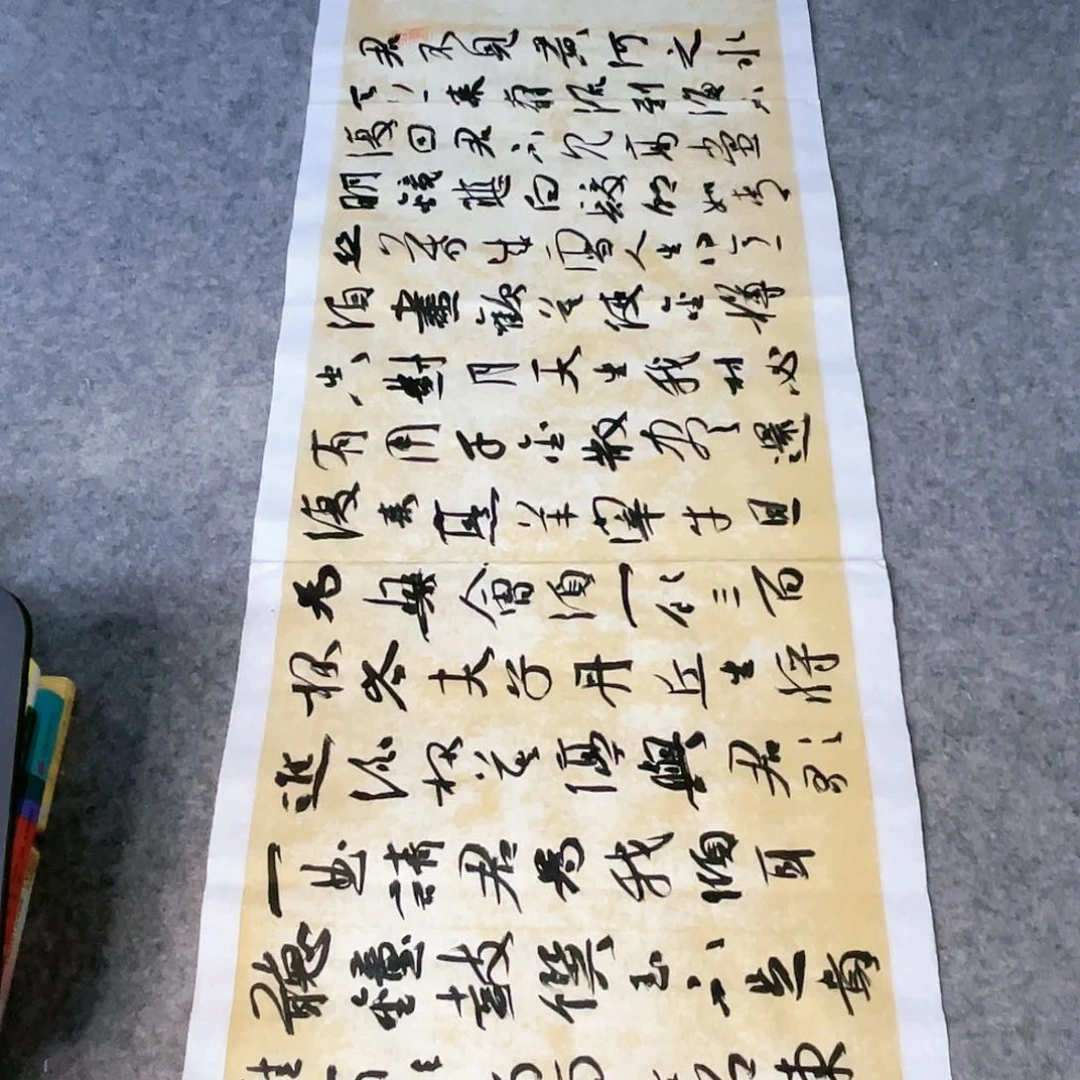 君不見黃河之水
天上來奔流到海不
復回君不見高堂
明鏡悲白髮朝如青
絲暮成雪人生得意
須盡歡莫使金樽
空對月天生我材必
有用千金散盡還
復來烹羊宰牛且
為樂會須一飲三百
杯岑夫子丹丘生將
進酒杯莫停與君歌
一曲請君為我傾耳
聽鐘鼓饌玉不足貴